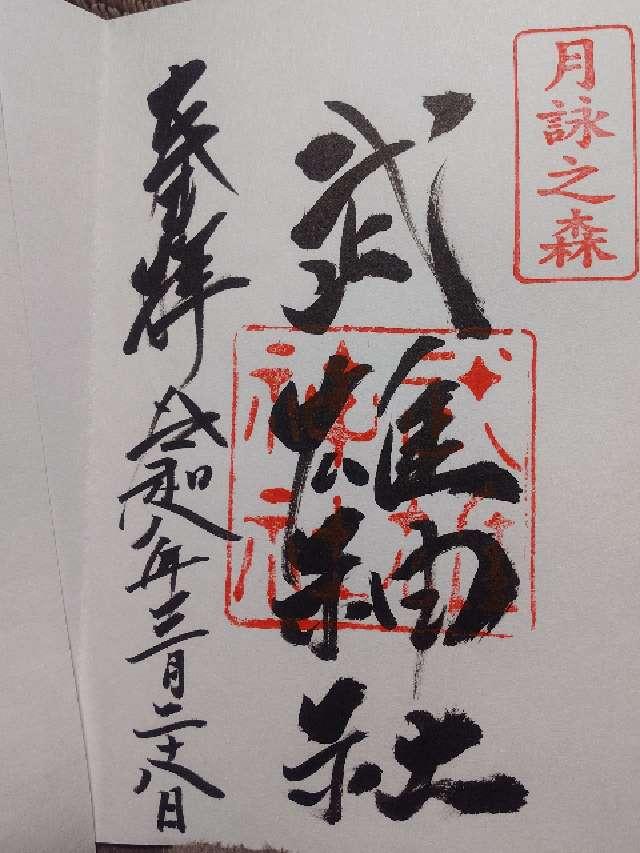 月詠之森
武雄神社
武雄
神社
奉拝 令和八年三月二十八日